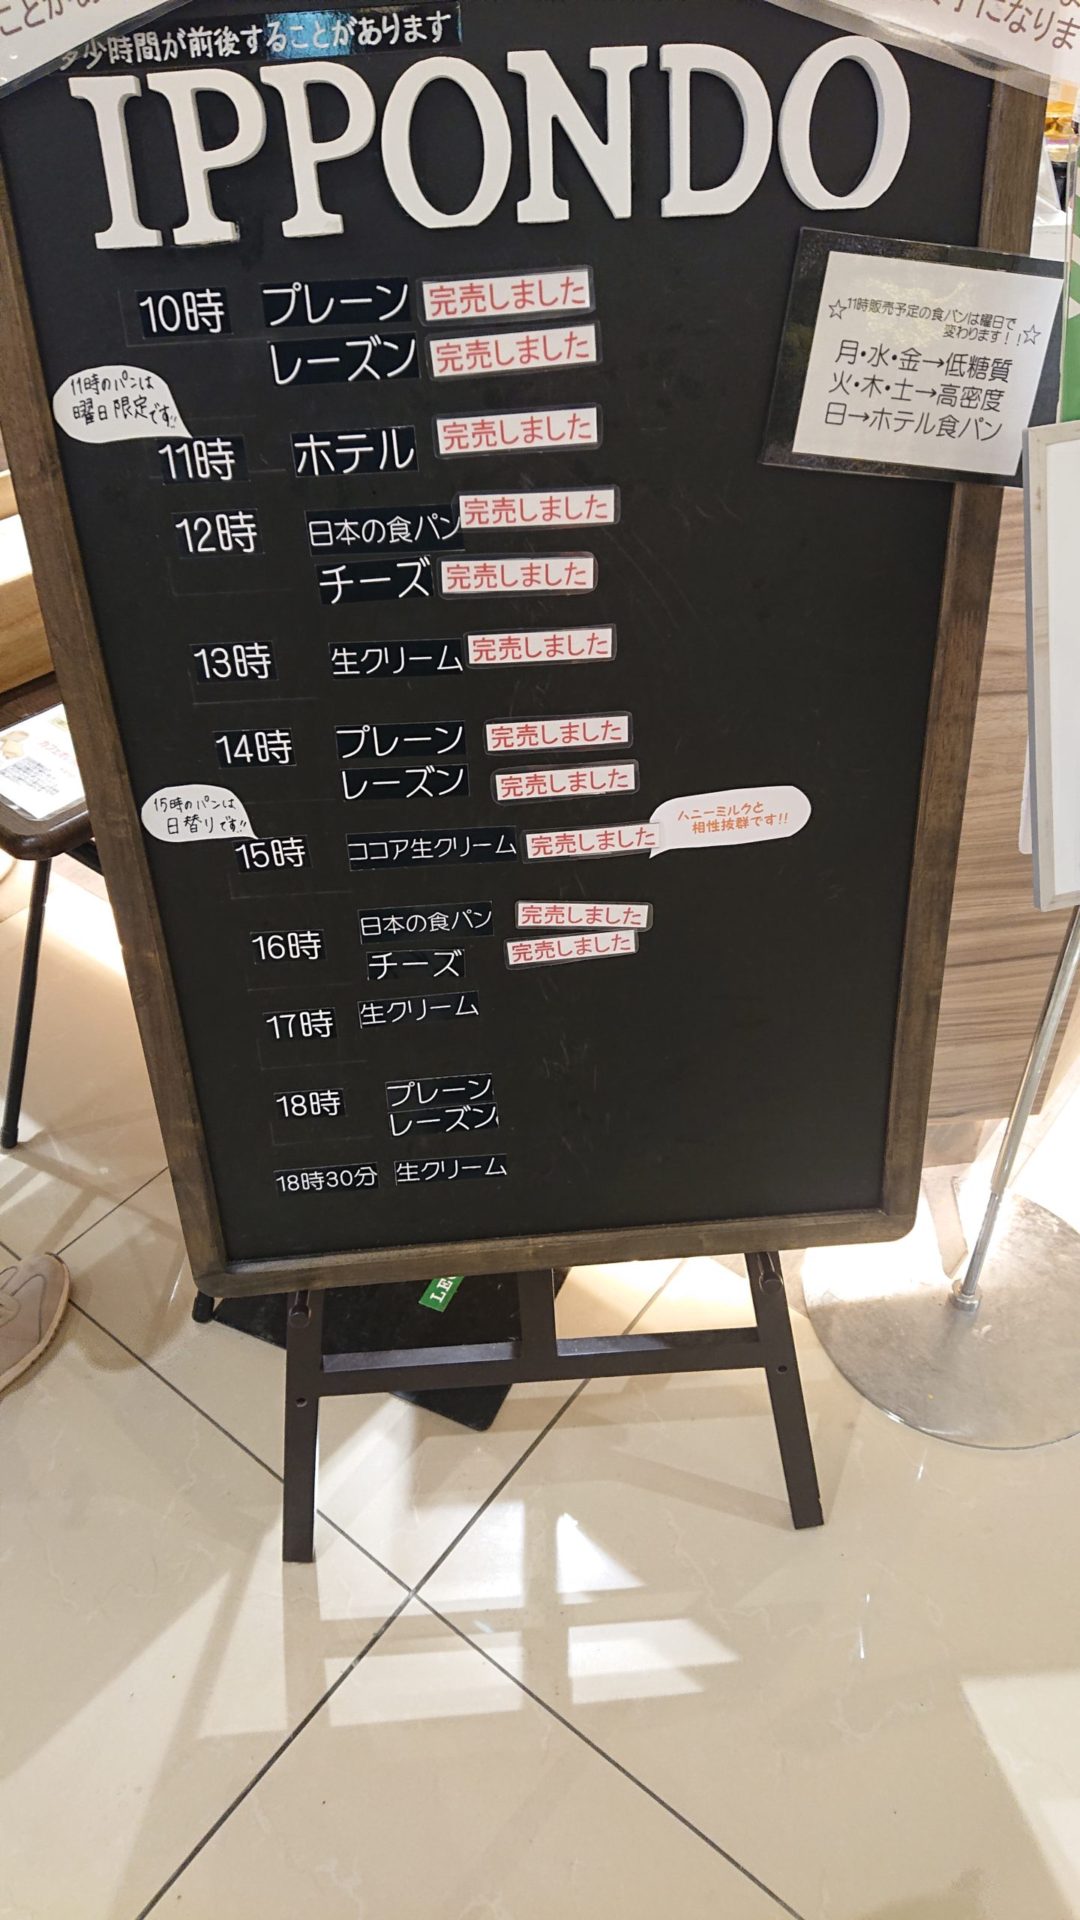 多少時間が前後することがあります
IPPONDO
10時 プレーン 完売しました
レーズン 完売しました
☆11時販売予定の食パンは曜日で
変わります！！☆
月・水・金→低糖質
火・木・土→高密度
日→ホテル食パン
11時のパンは
曜日限定です!!
11時 ホテル 完売しました
12時 日本の食パン 完売しました
チーズ 完売しました
13時 生クリーム 完売しました
14時 プレーン 完売しました
レーズン 完売しました
15時のパンは
日替りです!!
15時 ココア生クリーム 完売しました
ハニーミルクと
相性抜群です!!
16時 日本の食パン 完売しました
チーズ 完売しました
17時 生クリーム
18時 プレーン
レーズン
18時30分 生クリーム